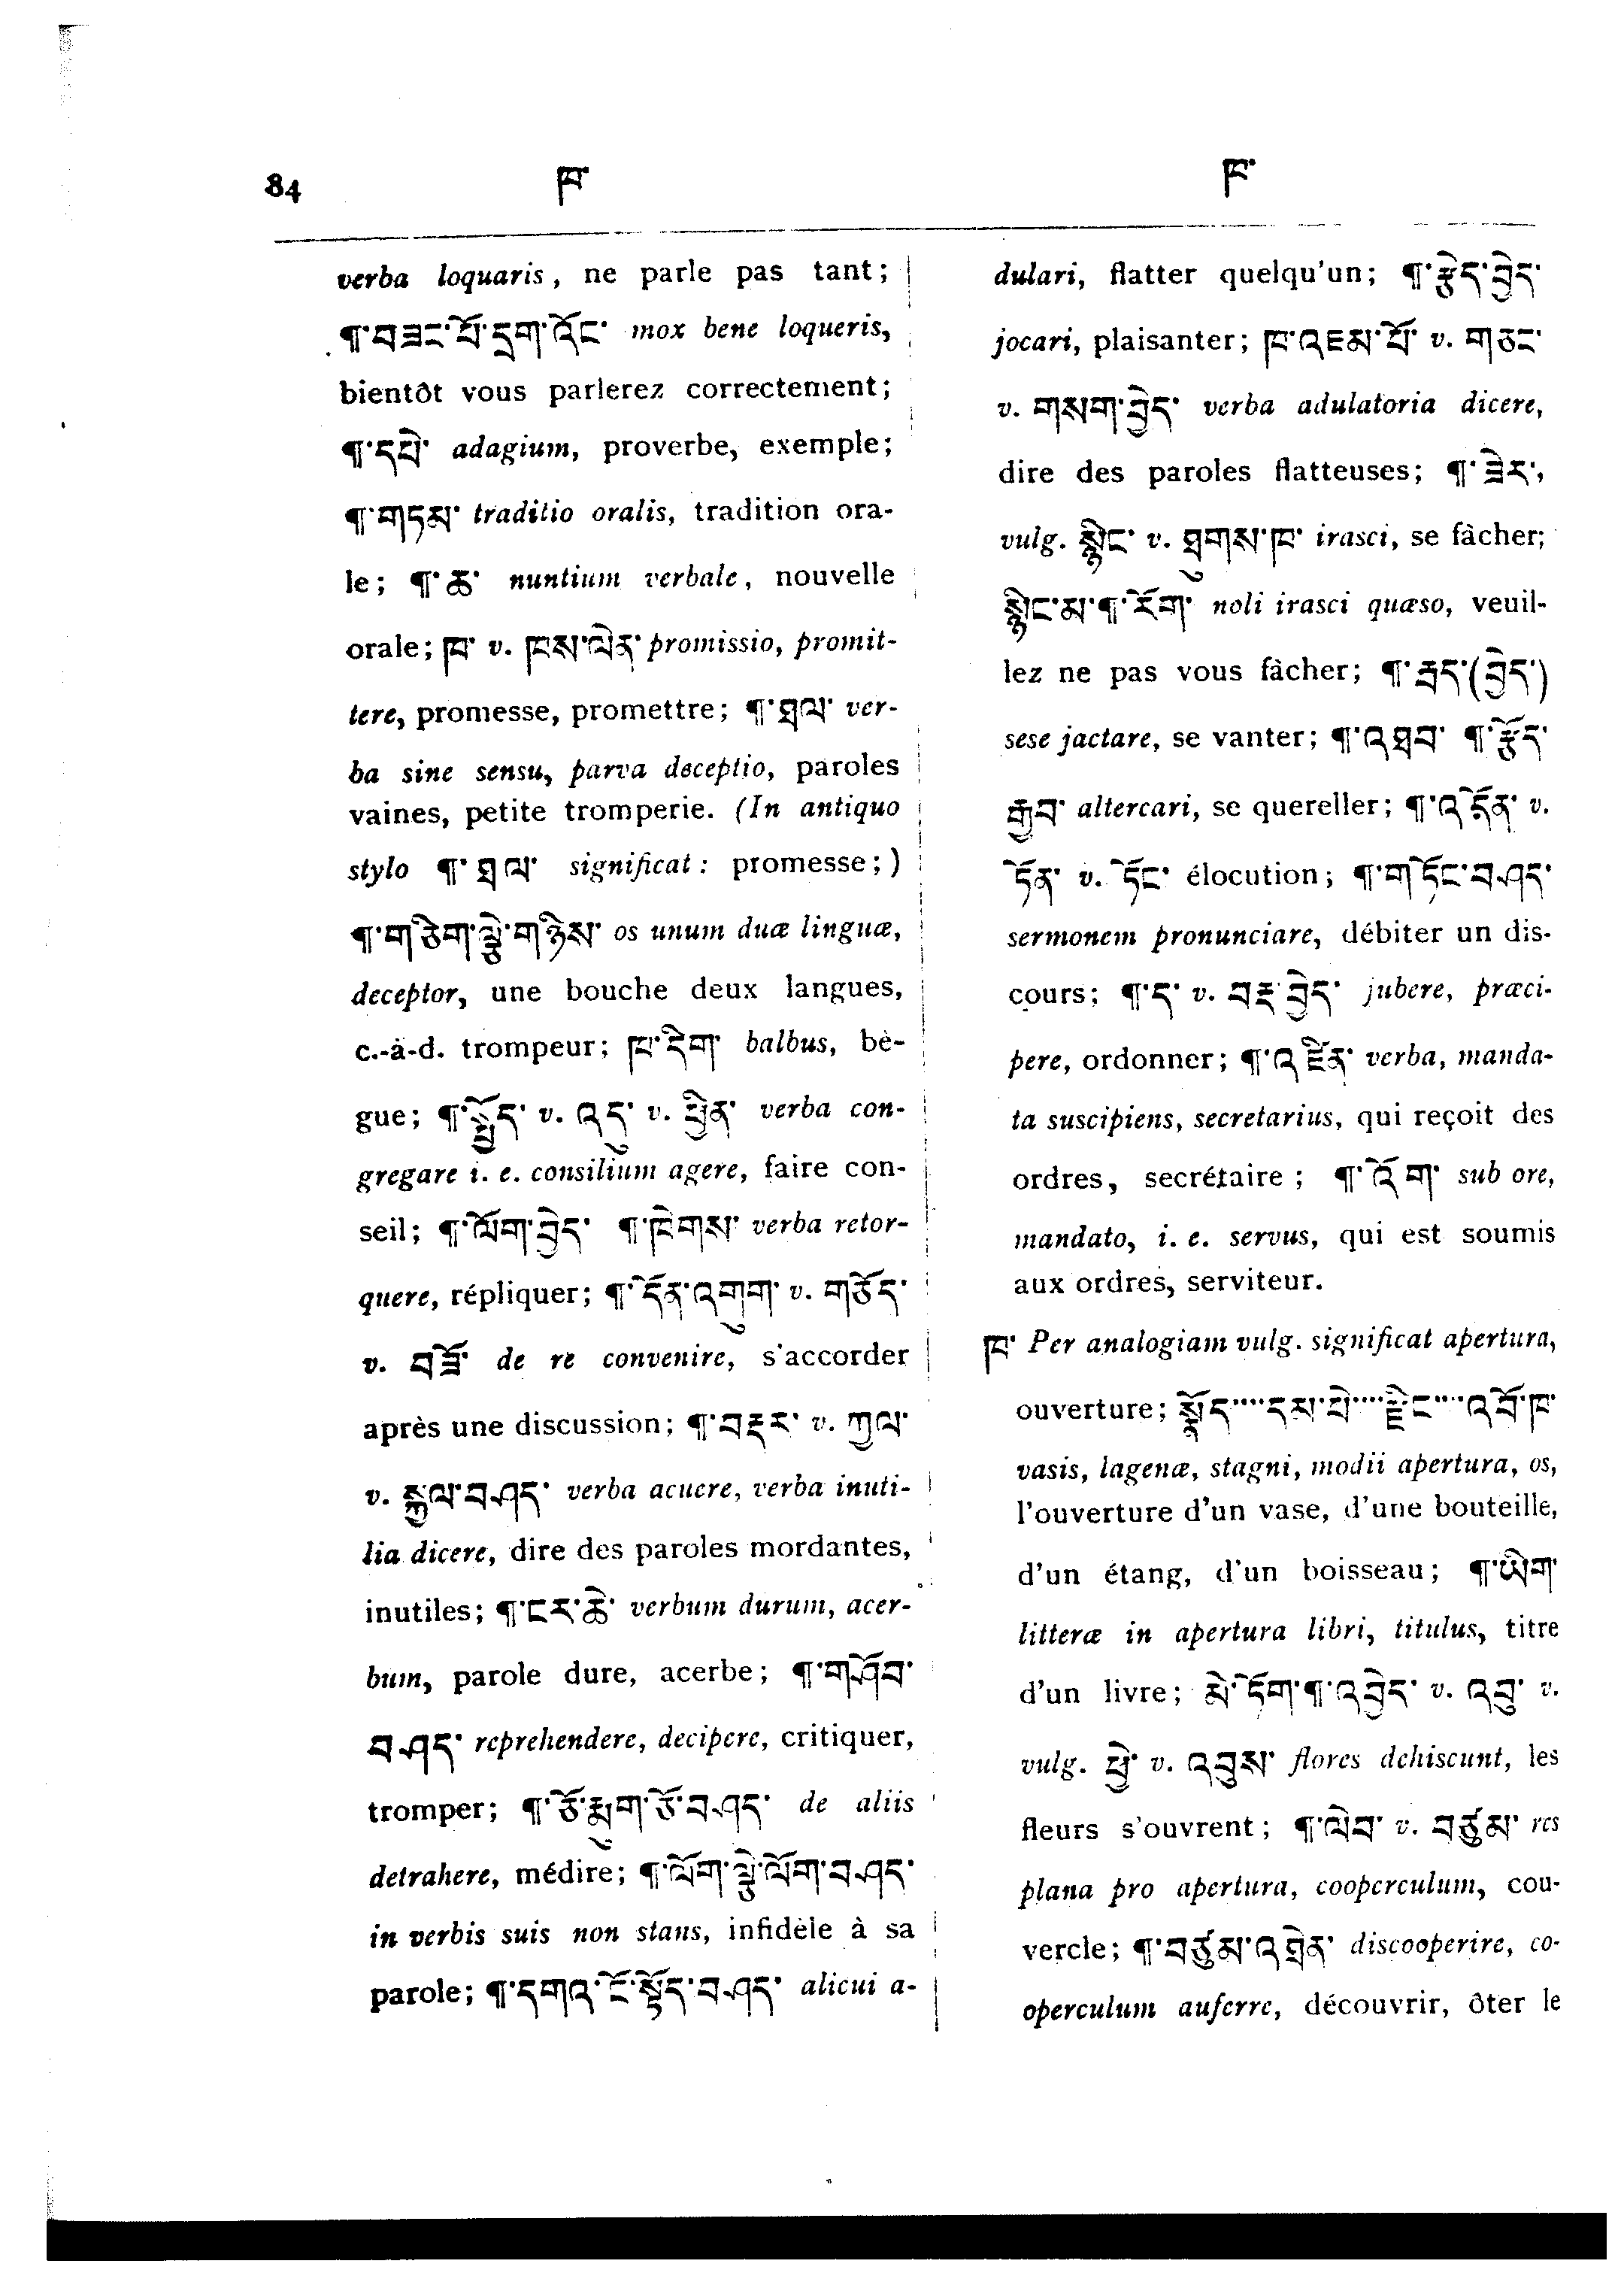 84
ཁ་
ཁ་
verba loquaris, ne parle pas tant;
¶་བཟང་པོ་དྲག་འོང་ mox bene loqueris,
bientôt vous parlerez correctement;
¶་དཔེ་ adagium, proverbe, exemple;
¶་གཏམ་ traditio oralis, tradition ora-
le; ¶་ཆ་ nuntium verbale, nouvelle
orale; ཁ་ v. ཁས་ལེན་ promissio, promit-
tere, promesse, promettre; ¶་ཐལ་ ver-
ba sine sensu, parva deceptio, paroles
vaines, petite tromperie. (In antiquo
stylo ¶་ཐལ་ significat: promesse;)
¶་གཅིག་ལྕེ་གཉིས་ os unum duæ linguæ,
deceptor, une bouche deux langues,
c.-à-d. trompeur; ཁ་དིག་ balbus, bè-
gue; ¶་སྤྲོད་ v. འདུ་ v. ཕྱིན་ verba con-
gregare i. e. consilium agere, faire con-
seil; ¶་ལོག་བྱེད་ ¶་ཁེགས་ verba retor-
quere, répliquer; ¶་དོན་འགུག་ v. གཅོད་
v. བཟོ་ de re convenire, s'accorder
après une discussion; ¶་བརྡར་ v. ཀྱལ་
v. རྐྱལ་བཤད་ verba acuere, verba inuti-
lia dicere, dire des paroles mordantes,
inutiles; ¶་ངར་ཆེ་ verbum durum, acer-
bum, parole dure, acerbe; ¶་གཤོབ་
བཤད་ reprehendere, decipere, critiquer,
tromper; ¶་ཅོ་རྨུག་ཅོ་བཤད་ de aliis
detrahere, médire; ¶་ལོག་ལྕེ་ལོག་བཤད་
in verbis suis non stans, infidèle à sa
parole; ¶་དགའ་ངོ་སྟོད་བཤད་ alicui a-
dulari, flatter quelqu'un; ¶་རྩེད་བྱེད་
jocari, plaisanter; ཁ་འཇམ་པོ་ v. གཅང་
v. གསག་བྱེད་ verba adulatoria dicere,
dire des paroles flatteuses; ¶་ཟེར་,
vulg. སྙིང་ v. ཐུགས་ཁ་ irasci, se fàcher;
སྙིང་མ་¶་རོག་ noli irasci quæso, veuil-
lez ne pas vous fàcher; ¶་རྦད་(བྱེད་)
sese jactare, se vanter; ¶་འཐབ་ ¶་རྩོད་
རྒྱབ་ altercari, se quereller; ¶་འདོན་ v.
ཏོན་ v. ཏོང་ élocution; ¶་གཏོང་བཤད་
sermonem pronunciare, débiter un dis-
cours; ¶་ད་ v. བརྡ་བྱེད་ jubere, præci-
pere, ordonner; ¶་འཛིན་ verba, manda-
ta suscipiens, secretarius, qui reçoit des
ordres, secrétaire; ¶་འོག་ sub ore,
mandato, i. e. servus, qui est soumis
aux ordres, serviteur.
ཁ་ Per analogiam vulg. significat apertura,
ouverture; སྣོད་····དམ་པེ་····རྫིང་····འབོ་ཁ་
vasis, lagenæ, stagni, modii apertura, os,
l'ouverture d'un vase, d'une bouteille,
d'un étang, d'un boisseau; ¶་ཡིག་
litteræ in apertura libri, titulus, titre
d'un livre; མེ་ཏོག་¶་འབྱེད་ v. འབུ་ v.
vulg. ཕྱེ་ v. འབུས་ flores dehiscunt, les
fleurs s'ouvrent; ¶་ལེབ་ v. བཙུམ་ res
plana pro apertura, cooperculum, cou-
vercle; ¶་བཙུམ་འཐེན་ discooperire, co-
operculum auferre, découvrir, ôter le